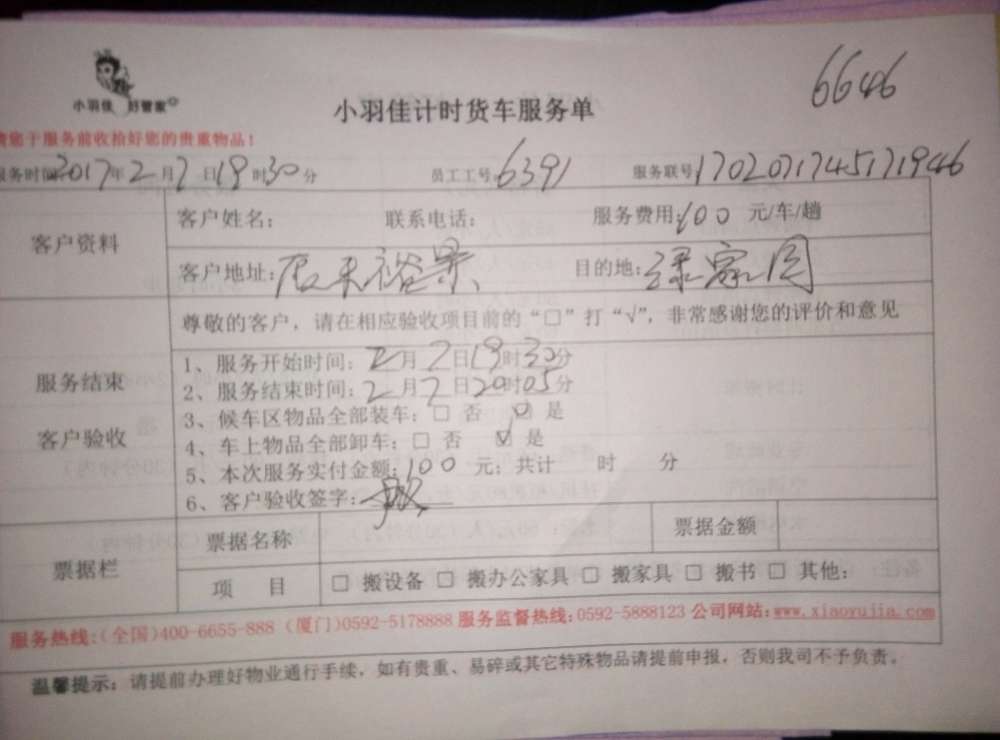 6646
小羽佳 好管家
小羽佳计时货车服务单
请您于服务前收拾好您的贵重物品！
服务时间:2017年2月7日19时30分 员工工号:6391 服务联号:1702071745171946
客户资料
客户姓名： 联系电话： 服务费用:100 元/车/趟
客户地址: 裕景 目的地:绿家园
尊敬的客户，请在相应验收项目前的“□”打“√”，非常感谢您的评价和意见
服务结束
客户验收
1、服务开始时间：2月7日19时30分
2、服务结束时间：2月7日20时05分
3、候车区物品全部装车：□ 否 ☑ 是
4、车上物品全部卸车：□ 否 ☑ 是
5、本次服务实付金额：100 元；共计 时 分
6、客户验收签字：
票据栏
票据名称 票据金额
项 目 □ 搬设备 □ 搬办公家具 □ 搬家具 □ 搬书 □ 其他：
服务热线:(全国)400-6655-888 (厦门)0592-5178888 服务监督热线:0592-5888123 公司网站:www.xiaoyujia.com
温馨提示：请提前办理好物业通行手续，如有贵重、易碎或其它特殊物品请提前申报，否则我司不予负责。